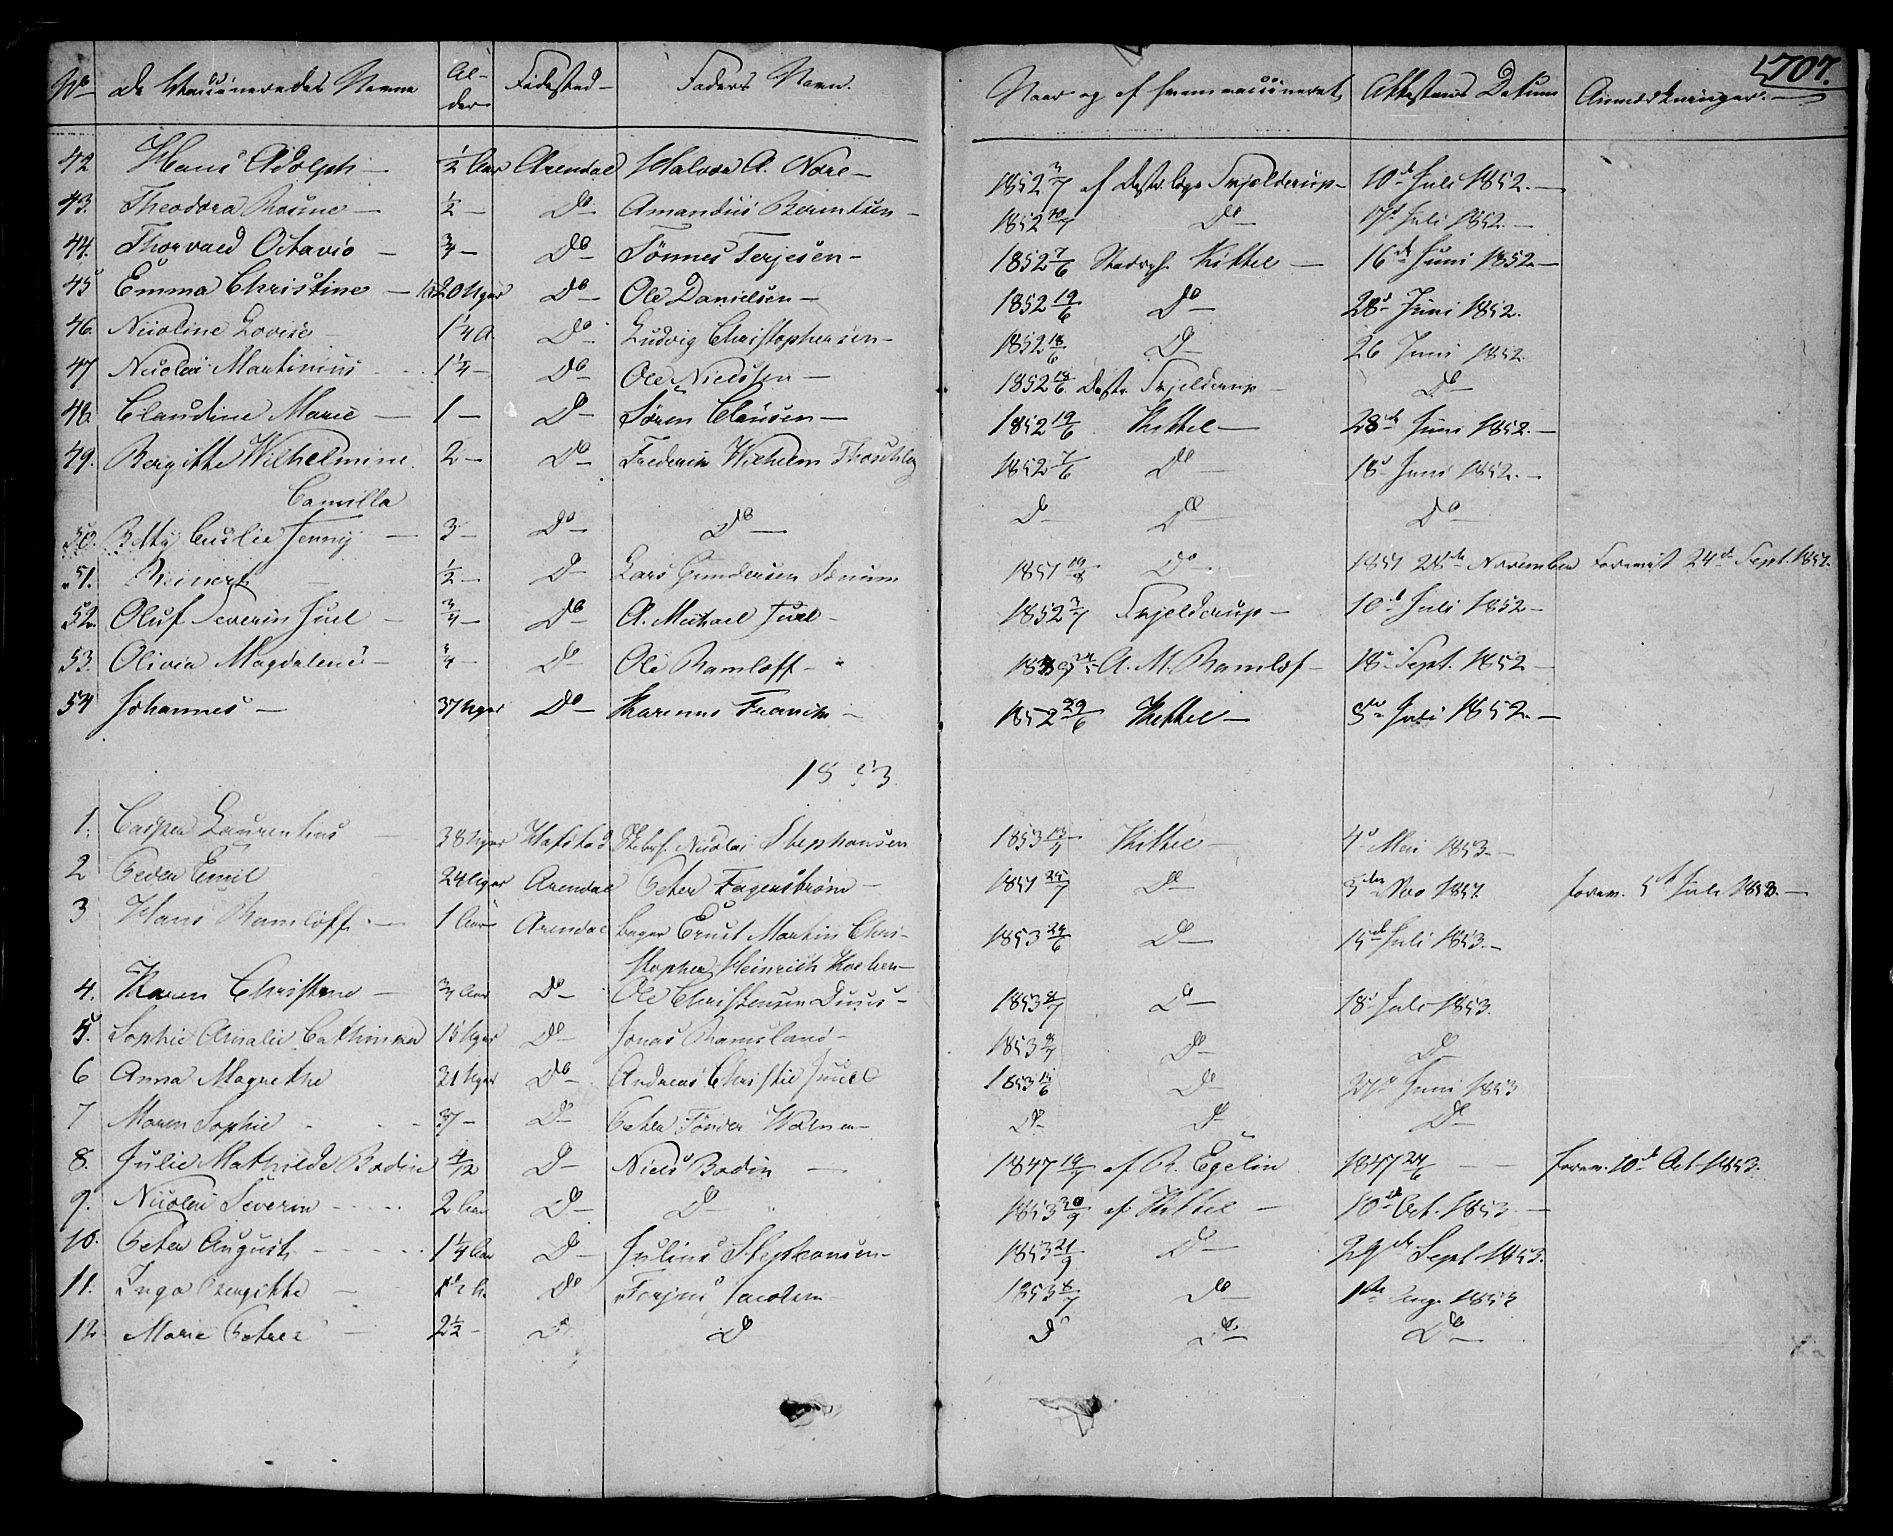 707.
No de Vaccineredes Navne Al-der Fødested Faders Navn. Naar og af hvem vaccineret Attestens Datum Anmærkninger.
42 Hans Adolph — ½ Aar Arendal Halvor A. — 1852 3/7 af Distr. Læge Fjelderup — 10de Juli 1852. —
43. Theodora — ½ — Do — Amandus Berentsen — 1852 10/7 Do — 17de Juli 1852. —
44. Thorvald Octavio — ¾ — Do — Tönnes Terjesen — 1852 7/6 Kittel — 16de Juni 1852 —
45 Emma Christine — 20 Uger Do — Ole Danielsen — 1852 19/6 Do — 28de Juni 1852.
46. Nicoline Lovise — 1¼ A. Do — Ludvig Christophersen — 1852 18/6 Do — 26 Juni 1852
47 Nicolai Martinius 1¼ — Do — Ole Nielssen — 1852 18/6 Distr. Fjelderup — Do —
48. Claudine Marie — 1 — Do — Sören Clausen — 1852 19/6 Kittel — 28de Juni 1852. —
49. Bergitte Wilhelmine 2 — Do — Frederik Wilhelm 1852 7/6 Do — 18de Juni 1852. —
Camilla
50. Betty Jenny — 3 — Do — Do — Do — Do — Do —
51. Reinert — ½ — Do — Lars Gundersen 1851 19/8 Do — 1851 28de November Forevist 24de Sept. 1852.
52. Oluf Severin Juel — ¾ — Do — A. Michael Juel — 1852 3/7 Fjelderup — 10de Juli 1852 —
53. Olivia Magdalene — Do — Ole Ramloff — A. M. Ramlof — 18de Sept. 1852 —
54 Johannes — 37 Uger Do — 1852 29/6 Kittel — Juli 1852. —
1853.
1. Casper Laurentius — 38 Uger Nicolai Stephansen 1853 Kittel — 4de Mai 1853. —
2 Peder Emil 24 Uger Arendal Peter Fagerström — 1851 25/7 Do — 1851. forev. 5te Juli 1853. —
3 Hans Ramloff. — 1 Aar Arendal Bager Ernst Martin Chri-
stopher Heinrich 1853 24/6 Do — 15de Juli 1853. —
4. Karen Christine — ¾ Aar Do — Ole Christensen Duus — 1853 8/7 Do — 18de Juli 1853.
5. Sophie Amalie Cathinca 15 Uger Do — Jonas Ramsland — 1853 9/7 Do — Do —
6 Anna Magrethe 21 Uger Do — Andreas Christie Juell 1853 Do — 27de Juni 1853
7 Maren Sophie 37 — Do — Peter Tönder — Do — Do Do —
8. Julie Mathilde Bodin Do — Niels Bodin — 1847 af R. Egelin 1847 24/6 — forev. 10de Oct. 1853.
9. Nicolai Severin 2 Aar Do — Do — 1853 30/9 af Kittel — 10de Oct. 1853. —
10. Peter August 1¼ Aar Do — Julius Stephansen — 1853 21/9 Do — 29de Sept 1853.
11. Inga Bergitte — Do Jacobsen — 1853 8/7 Do — 1ste Aug. 1853
12 Marie Petrea — 2½ — Do Do Do Do — Do —